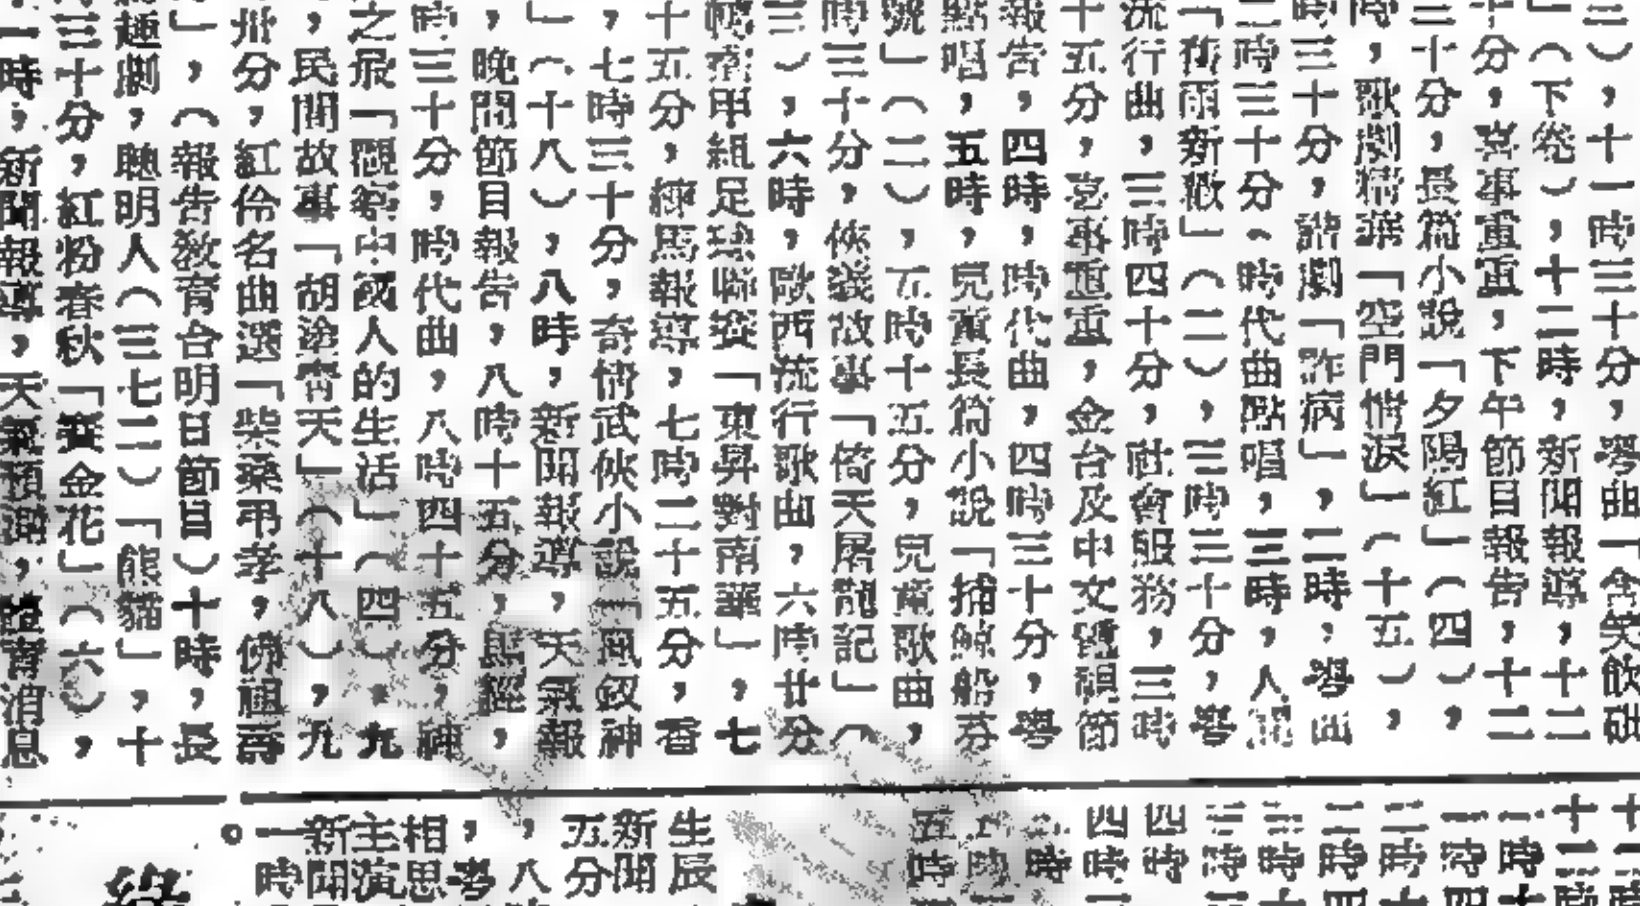 三），十一時三十分，粵曲「含笑飲砒
」（下卷），十二時，新聞報導，十二
十分，喜事重重，下午節目報告，十二
三十分，長篇小說「夕陽紅」（四），
時，歌劇精華「空門情淚」（十五），
時三十分，諧劇「詐病」，二時，粵曲
二時三十分，時代曲點唱，三時，人間
「舊雨新歡」（二），三時三十分，粵
流行曲，三時四十分，社會服務，三時
十五分，喜事重重，金台及中文電視節
報告，四時，時代曲，四時三十分，粵
點唱，五時，兒童長篇小說「捕鯨船芬
號」（二），五時十五分，兒童歌曲，
時三十分，俠義故事「倚天屠龍記」（
三），六時，歐西流行歌曲，六時廿分
甲組足球聯賽「東昇對南華」，七
十五分，練馬報導，七時二十五分，香
，七時三十分，奇情武俠小說「鳳釵神
」（十八），八時，新聞報導，天氣報
，晚間節目報告，八時十五分，
時三十分，時代曲，八時四十五分，神
之最「觀察中國人的生活」（四），九
，民間故事「胡塗青天」（十八），九
卅分，紅伶名曲選「柴桑弔孝，佛祖尋
」，（報告教育台明日節目）十時，長
趣劇，聰明人（三七二）「熊貓」，十
三十分，紅粉春秋「賽金花」（六），
一時，新聞報導，天氣預測，體育消息
十二時
十二時
一時十
一時四
二時十
二時四
三時十
三時
四時
四時一
時
時
五時
生辰
新聞
五分
，八
，粵
相思
主演
新聞
一時
。